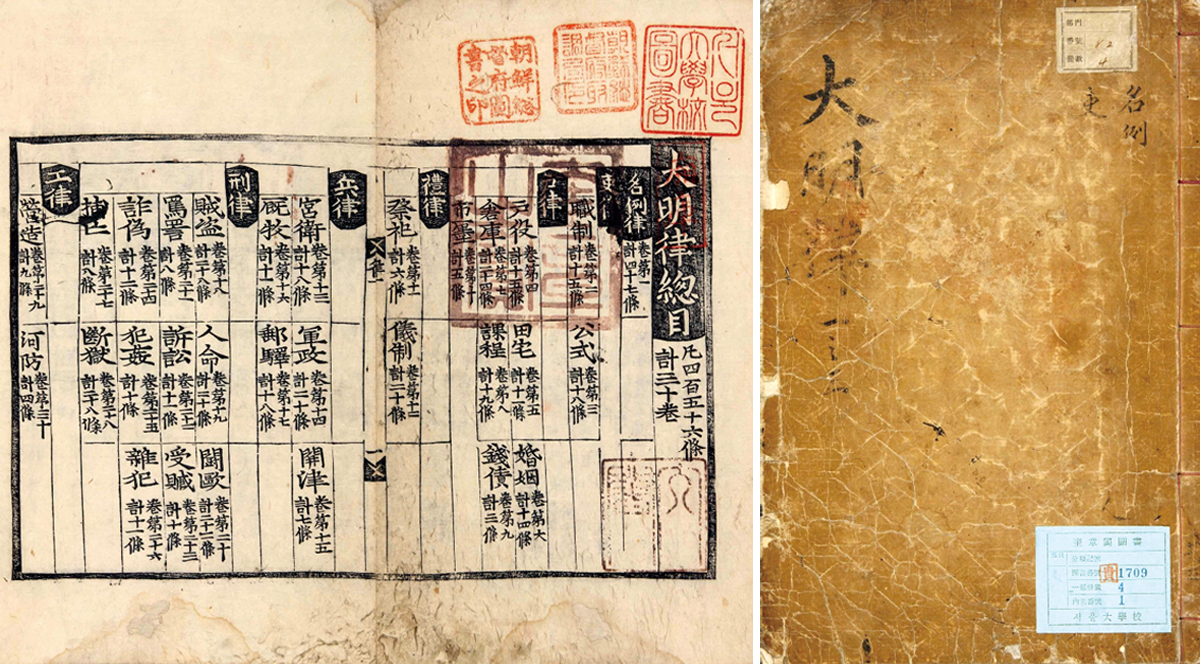 朝鮮總
督府圖
書之印
서울
大學校
圖書
大明律總目
凡四百五十六條
計三十卷
名例律
卷第一
計四十七條
職制 卷第二 計十五條
公式 卷第三 計十八條
戶役 卷第四 計十五條
田宅 卷第五 計十一條
婚姻 卷第六 計十四條
倉庫 卷第七 計二十四條
課程 卷第八 計十九條
錢債 卷第九 計三條
市廛 卷第十 計五條
禮律
祭祀 卷第十一 計六條
儀制 卷第十二 計二十條
兵律
宮衛 卷第十三 計十八條
軍政 卷第十四 計二十條
關津 卷第十五 計七條
廐牧 卷第十六 計十一條
郵驛 卷第十七 計十八條
刑律
賊盜 卷第十八 計二十八條
人命 卷第十九 計二十條
鬪毆 卷第二十 計二十二條
罵詈 卷第二十一 計八條
訴訟 卷第二十二 計十二條
受贓 卷第二十三 計十條
詐偽 卷第二十四 計十二條
犯姦 卷第二十五 計十條
雜犯 卷第二十六 計十一條
捕亡 卷第二十七 計八條
斷獄 卷第二十八 計二十八條
工律
營造 卷第二十九 計九條
河防 卷第三十 計四條
大明律
名例
吏
部門
番號 12
冊數 4
奎章閣圖書
貴 1709
4
1
서울大學校